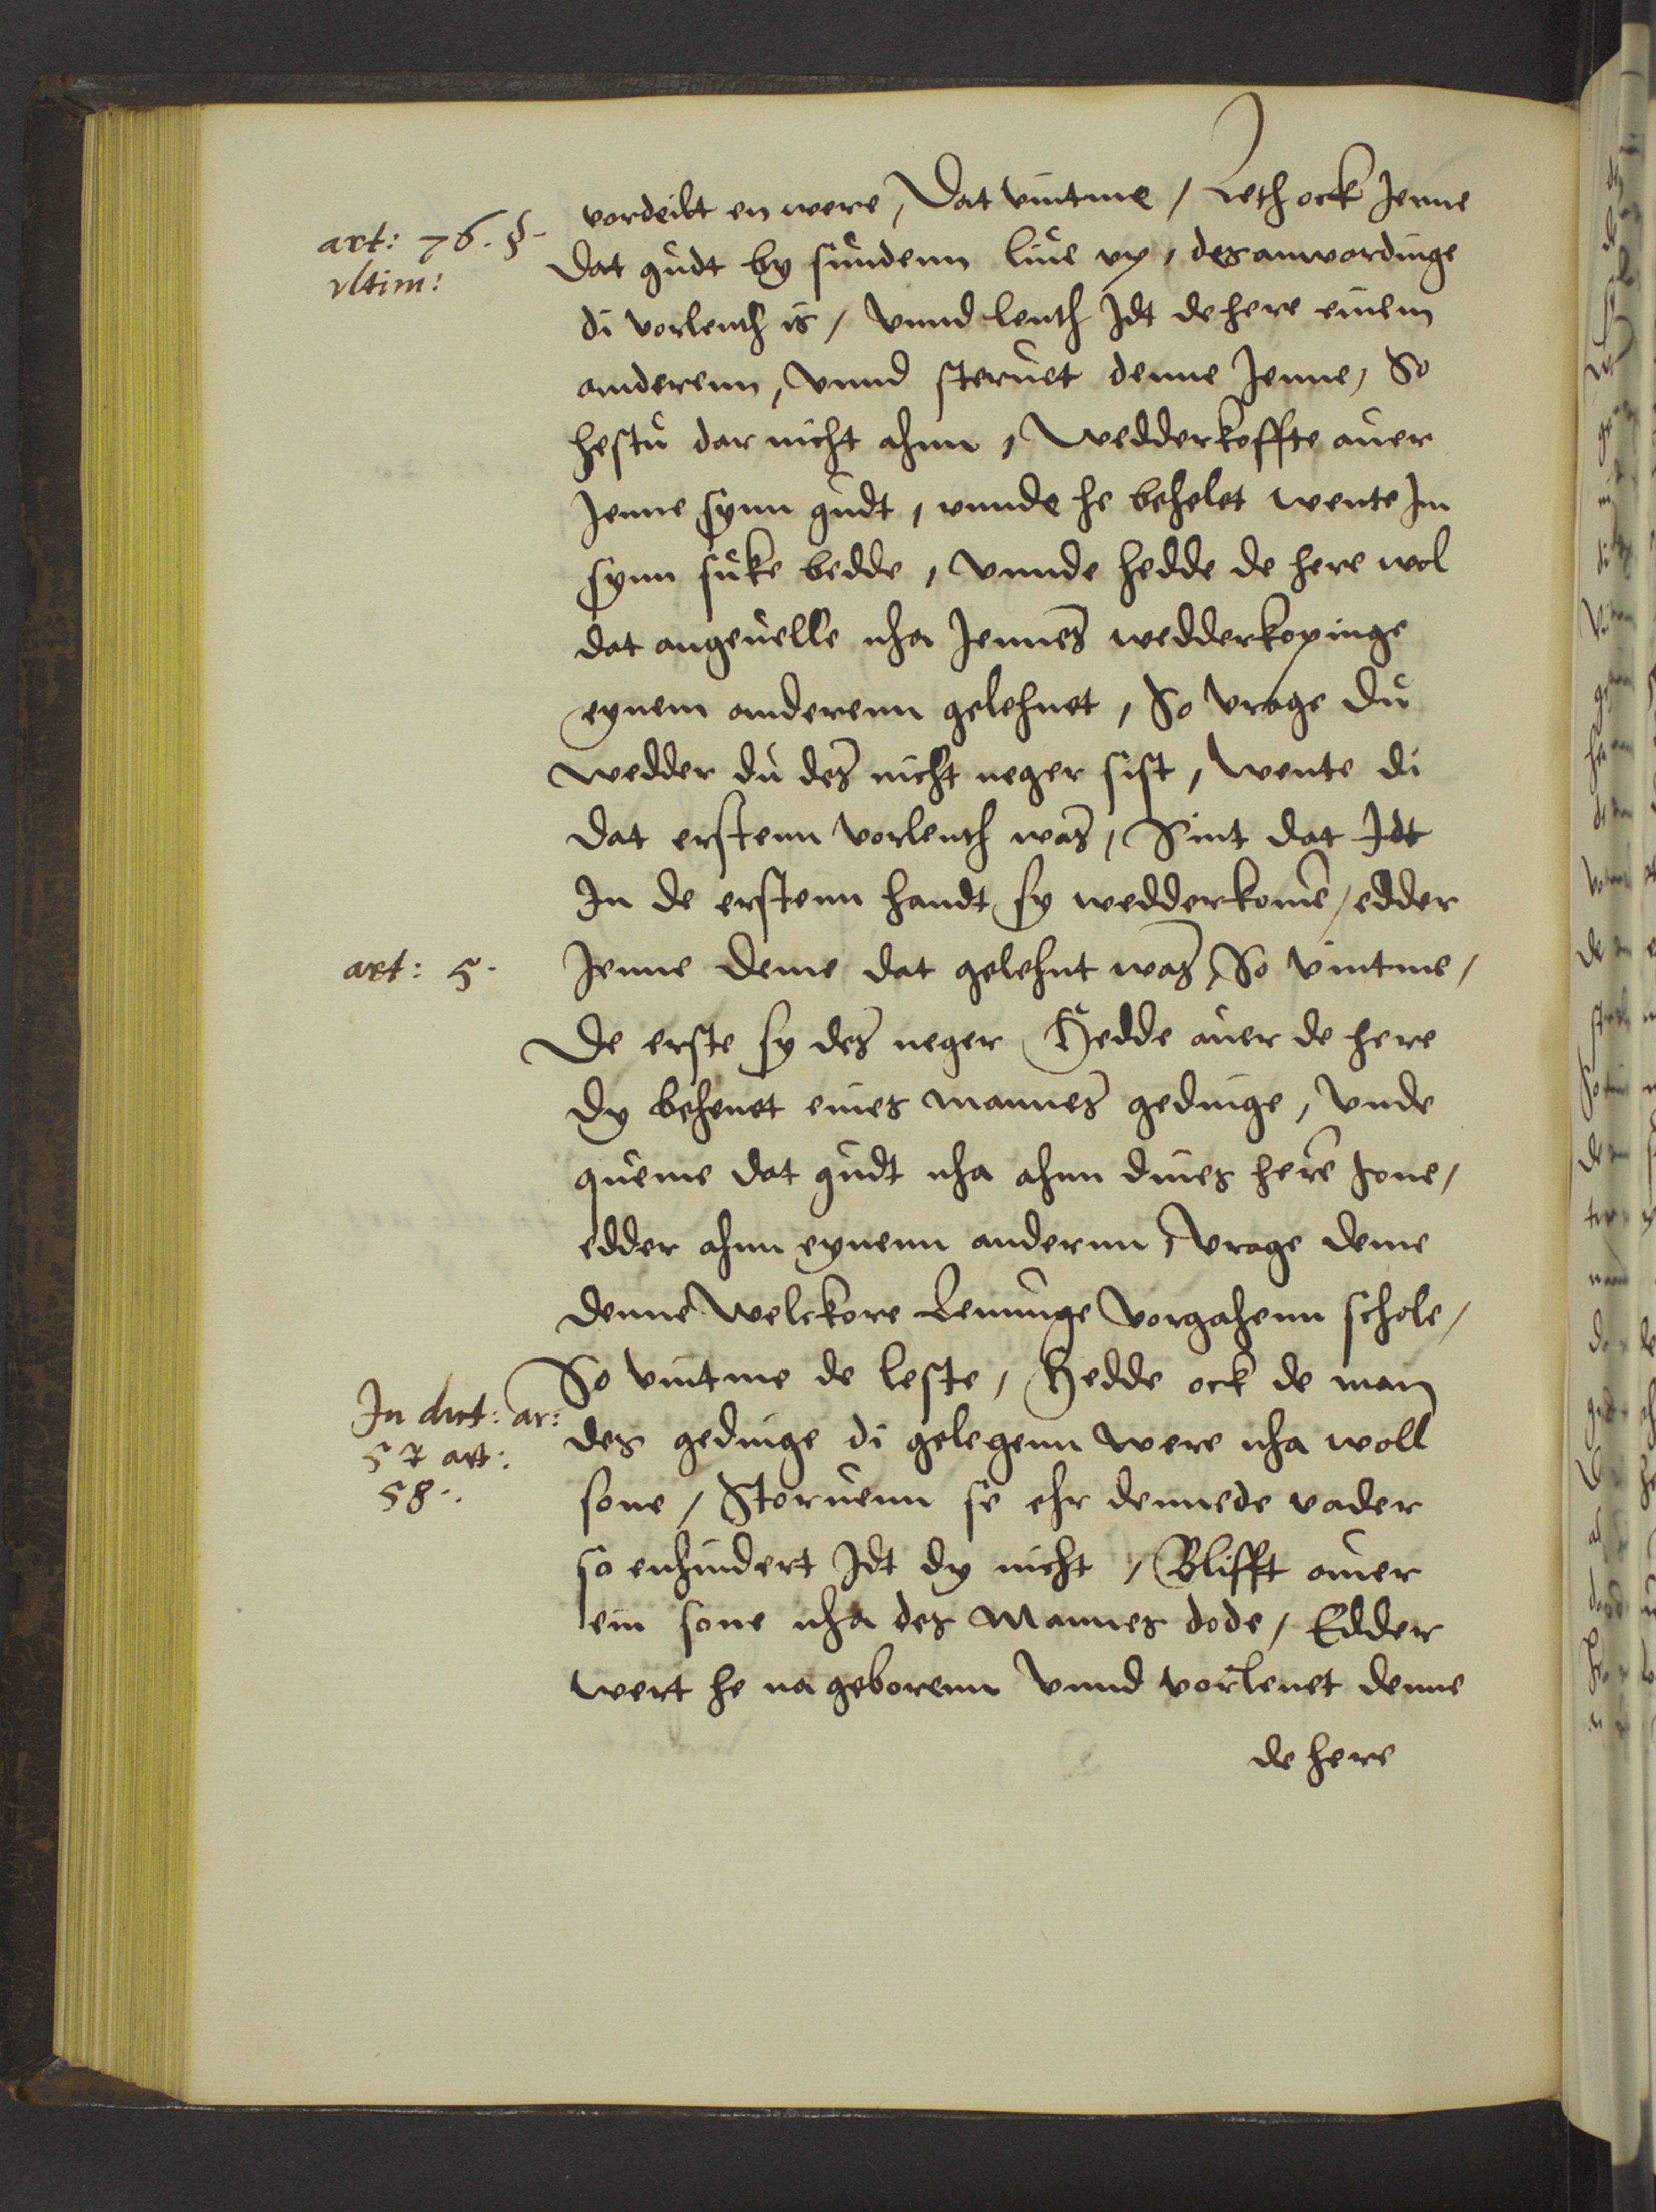 art: 76. §.
vltim:
vordeilt en were, Dat vintme / Leth ock Jenne
Dat gudt by sundenn liue vp, des anwordinge
di vorlenth is / Vnnd lenth Jdt de here einem
anderenn, Vnnd steruet denne Jenne, So
hestu dar nicht ahnn, Wedderkoffte auer
Jenne synn gudt, vnnde he behelet wente Jn
synn suke bedde, Vnnde hedde de here wol
dat angeuelle nha Jennes wedderkopinge
eynem anderenn gelehnet, So Vrage du
wedder du des nicht neger sist, Wente di
Dat erstenn Vorlenth was, Sint dat Jdt
Jn de erstenn handt sy wedderkome, edder
art: 5.
Jenne Deme dat gelehnt was, So Vintme,
De erste sy des neger Hedde auer de here
Dy behenet eines mannes gedinge, Vnde
queme dat gudt nha ahnn dines here sone,
edder ahnn eynenn andernn, Vrage deme
Denne Welckore Lenunge Vorgahenn schole,
So vintme de leste, Hedde ock de man
In dict: ar:
57 art:
58.
des gedinge di gelegenn were nha woll
sone, Storuenn se ehr denne de vader
so enhindert Jdt dy nicht, Blifft auer
ein sone nha des Mannes dode, Edder
wert he na geborenn Vnnd vorlenet denne
de here